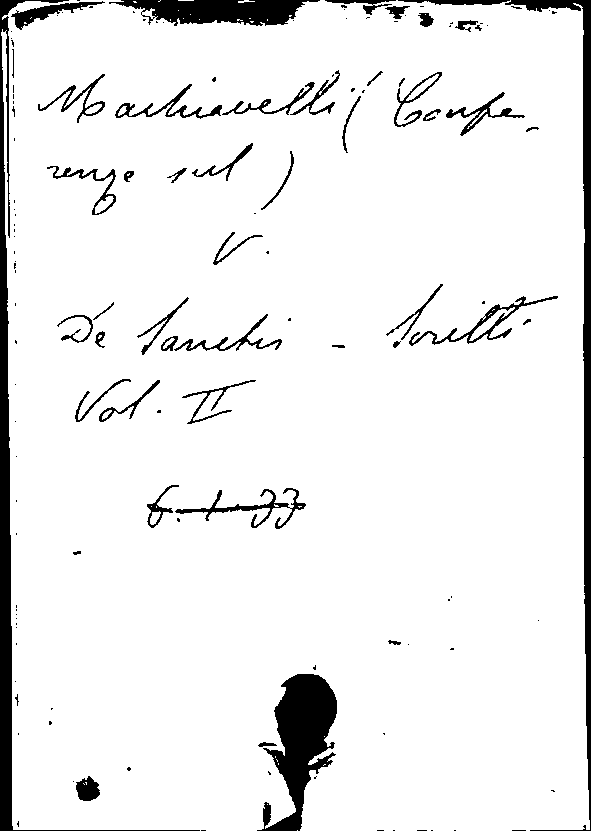 Machiavelli (Confe-
renze sul)
V.
De Sanctis - Scritti
Vol. II
6. 1. 33